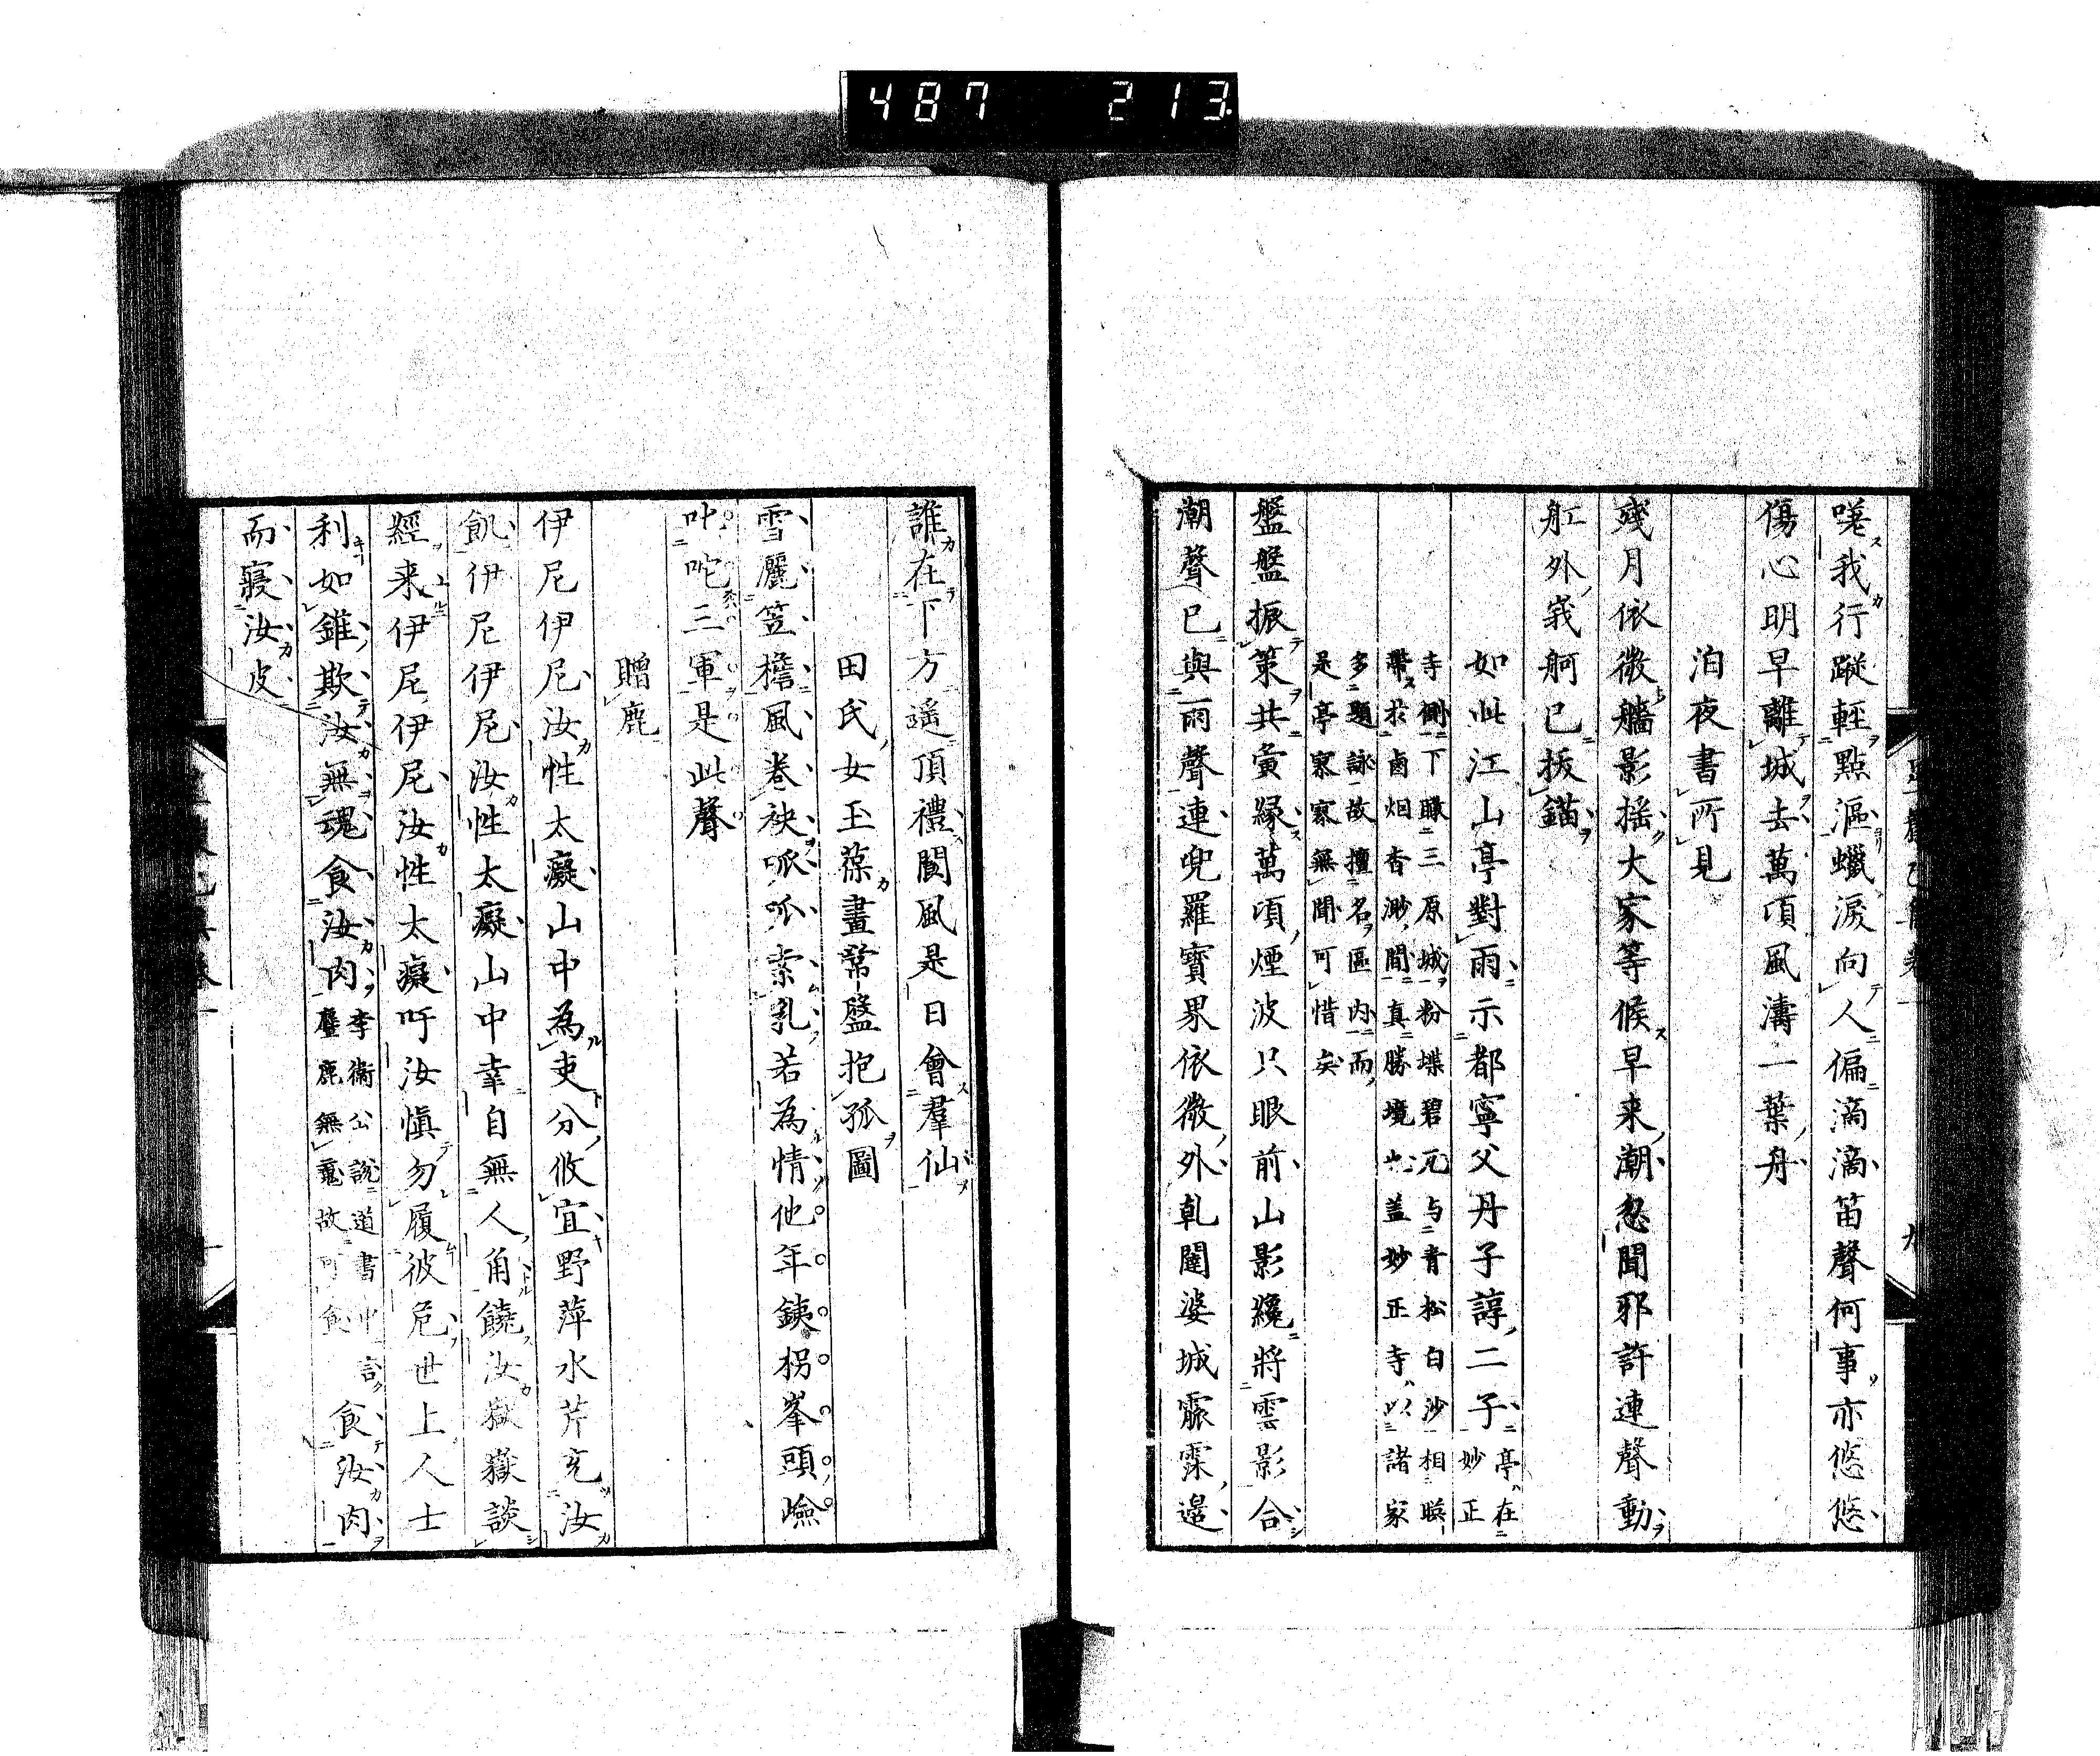 487 213
嗟我行蹤輕點漚蠟淚向人偏滴滴笛聲何事亦悠悠
傷心明早離城去萬頃風濤一葉舟
泊夜書所見
殘月依微艢影搖大家等候早来潮忽聞邪許連聲動
舡外峩舸已拔錨
如此江山亭對雨示都寧父丹子諄二子亭在妙正
寺側下瞰三原城粉堞碧瓦与青松白沙相映
帶于鹵烟杳渺間真勝境也盖妙正寺以諸家
多題詠故擅名區内而
是亭寥寥無聞可惜矣
盤盤振策共夤緣萬頃煙波只眼前山影纔將雲影合
潮聲已與雨聲連兜羅寶界依微外乹闥婆城霡霂邉
誰在下方遥頂禮閬風是日會羣仙
田氏女玉葆畫常盤抱孤圖
雪灑笠檐風卷袂呱呱索乳若為情他年鐵拐峯頭嶮
叱咤三軍是此聲
贈鹿
伊尼伊尼汝性太癡山中為吏分攸宜野萍水芹充汝
飢伊尼伊尼汝性太癡山中幸自無人角饒汝嶽嶽談
經来伊尼伊尼汝性太癡吁汝慎勿履彼危世上人士
利如錐欺汝無魂食汝肉李衛公說道書中言麞鹿無魂故可食食汝肉
而寢汝皮